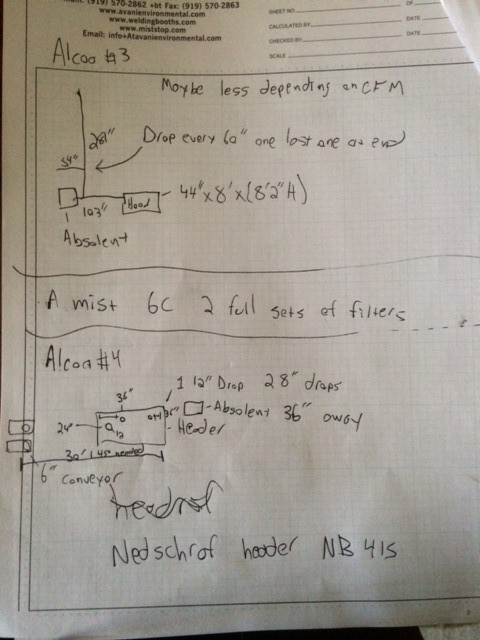 (919) 570-2862 • bt Fax: (919) 570-2863
www.avanienvironmental.com
www.weldingbooths.com
www.miststop.com
Email: info@Atavanienvironmental.com
SHEET NO.
CALCULATED BY
DATE
CHECKED BY
DATE
SCALE
Alcoa #3
Maybe less depending on CFM
281"
Drop every 60" one last one at end
54"
103"
Hood
44" x 8' x (8'2" H)
1
Absolent
A mist 6C 2 full sets of filters
Alcoa #4
1 12" Drop 2 8" drops
36"
36"
Absolent 36" away
24"
12
Header
30' 1 45° needed
6" conveyor
Nedschrof header NB 415